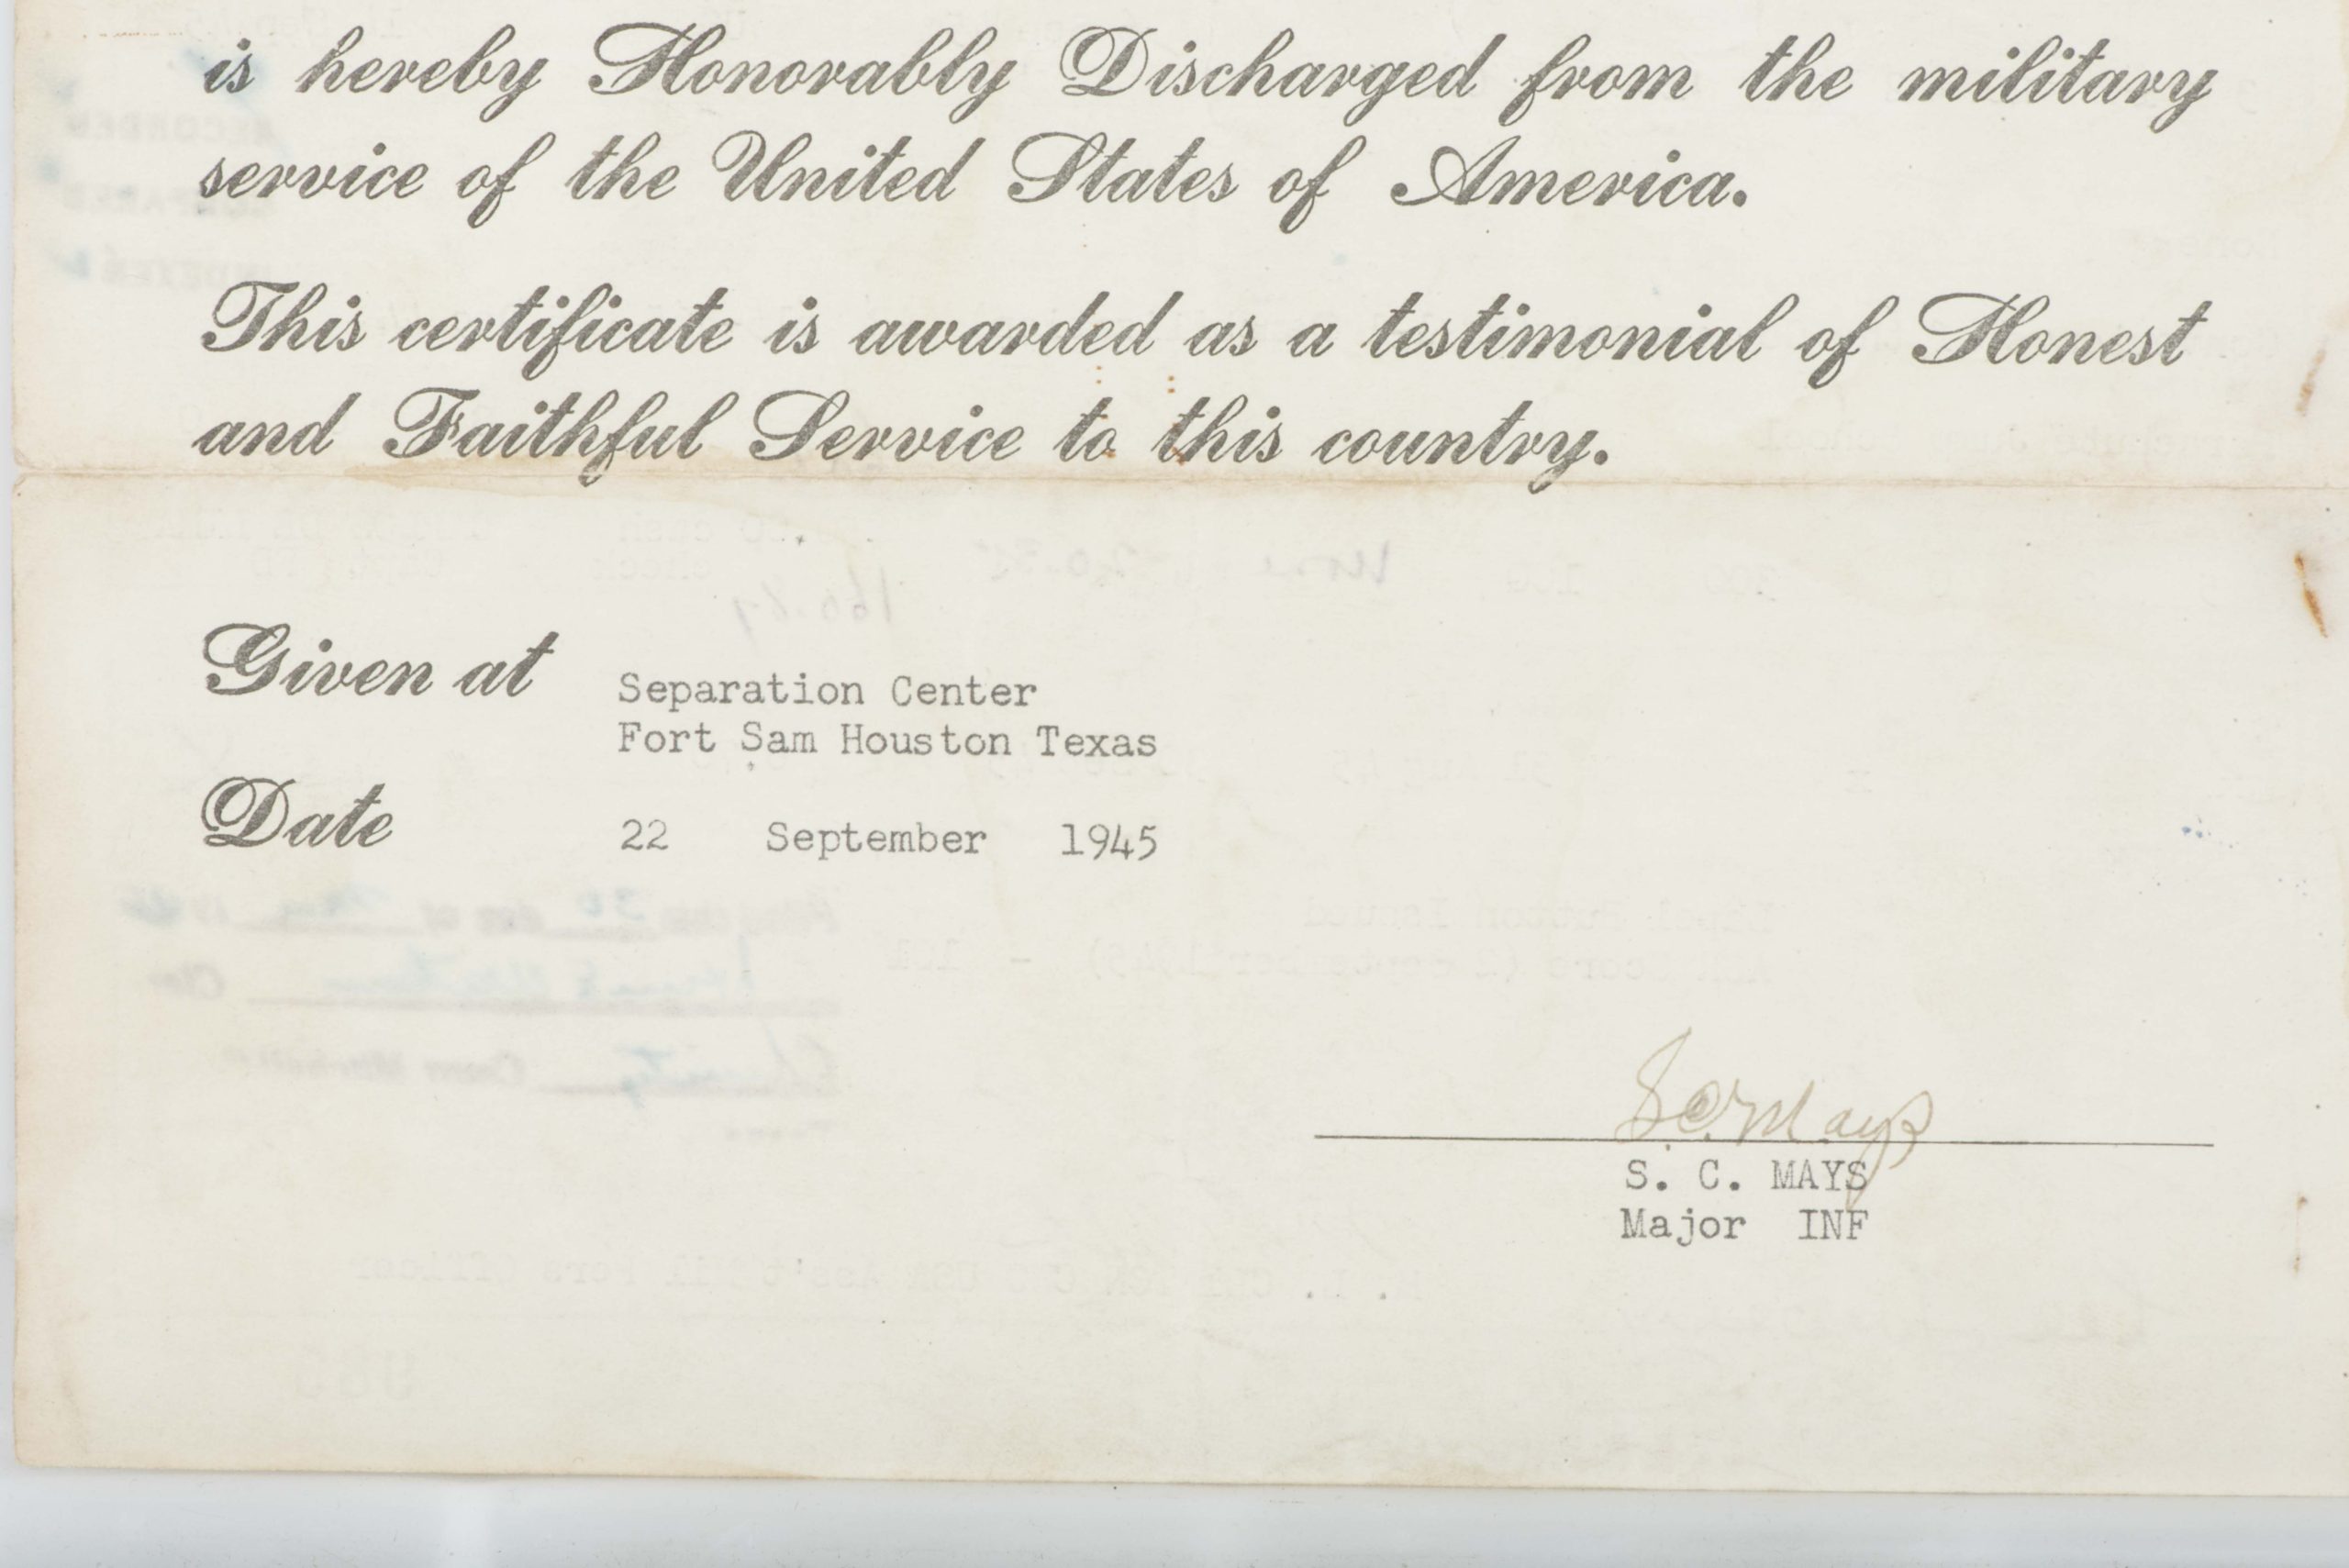 is hereby Honorably Discharged from the military
service of the United States of America.
This certificate is awarded as a testimonial of Honest
and Faithful Service to this country.
Given at Separation Center
Fort Sam Houston Texas
Date 22 September 1945
S. C. Mays
S. C. MAYS
Major INF